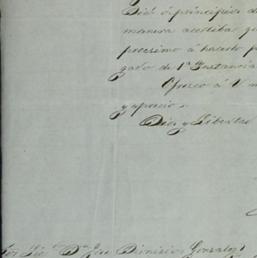 Dió principio d
manera acredita q
procsimo á hacerlo p
gado de 1ª Instancia
Ofresco á V
y aprecio.
Dios y Libertad
Sor Lic Dn José Dionisio Gonzalez